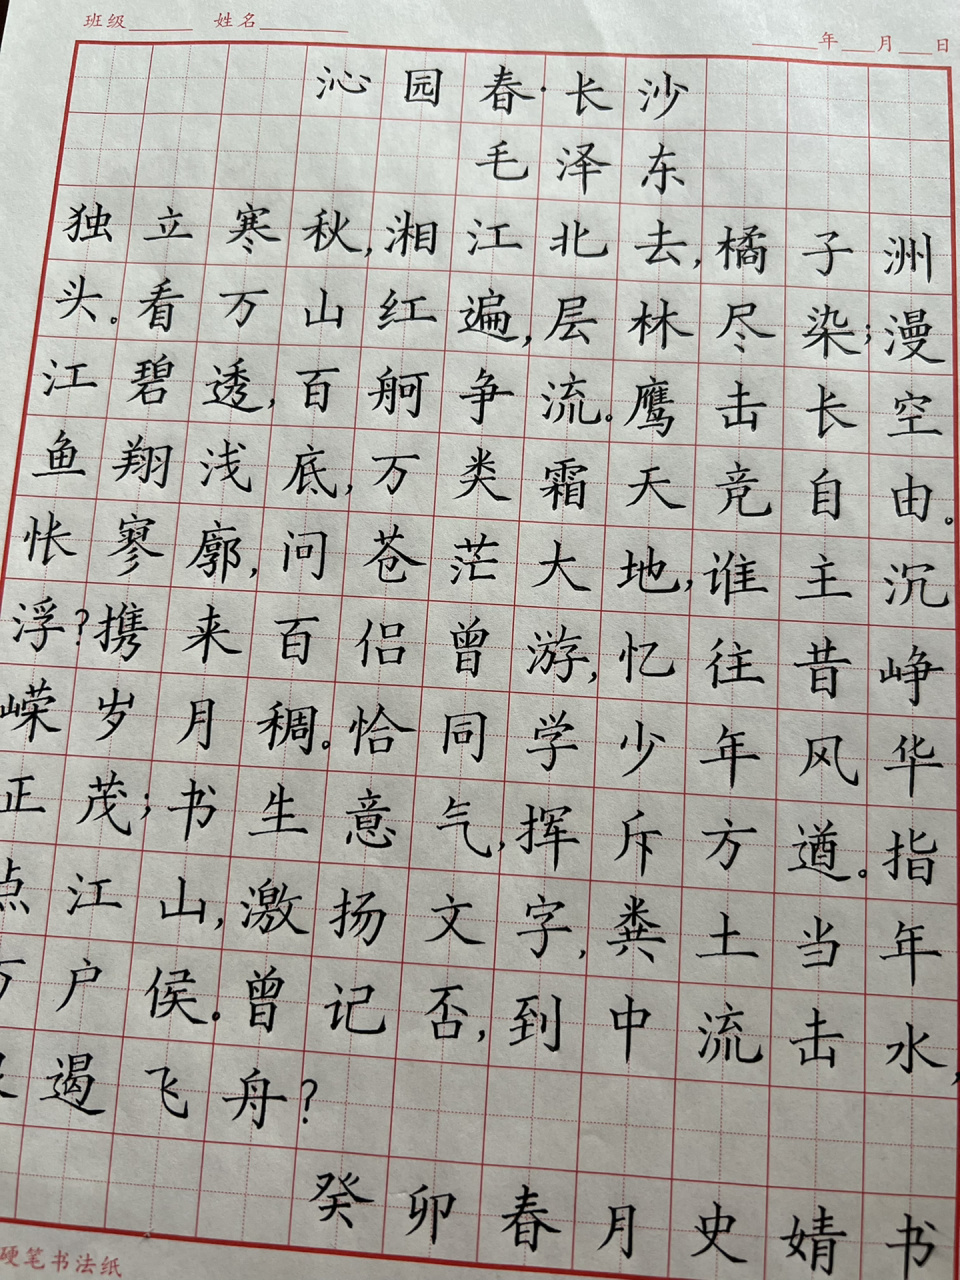 班级 姓名
年 月 日
沁园春·长沙
毛泽东
独立寒秋,湘江北去,橘子洲
头。看万山红遍,层林尽染;漫
江碧透,百舸争流。鹰击长空
鱼翔浅底,万类霜天竞自由。
怅寥廓,问苍茫大地,谁主沉
浮?携来百侣曾游,忆往昔峥
嵘岁月稠。恰同学少年风华
正茂;书生意气,挥斥方遒。指
点江山,激扬文字,粪土当年
万户侯。曾记否,到中流击水,
遏飞舟?
癸卯春月史婧书
硬笔书法纸